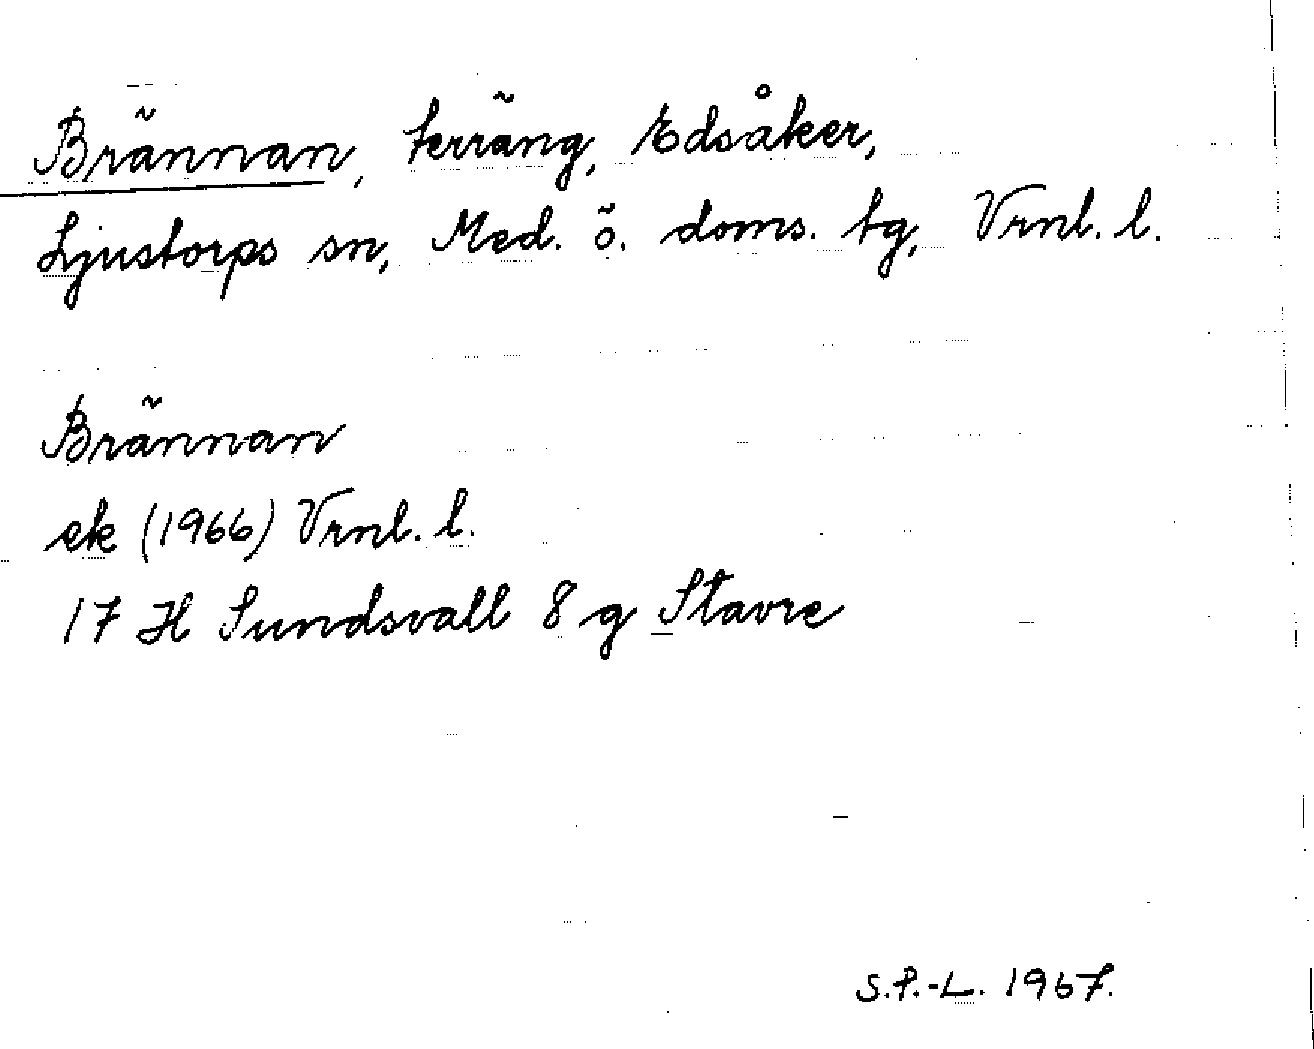 Brännan, terräng, Edsåker,
Ljustorps sn, Med. ö. doms. tg, Vrnl. l.
Brännan
ek (1966) Vrnl. l.
17 H Sundsvall 8 g Stavre
S.P.-L. 1967.